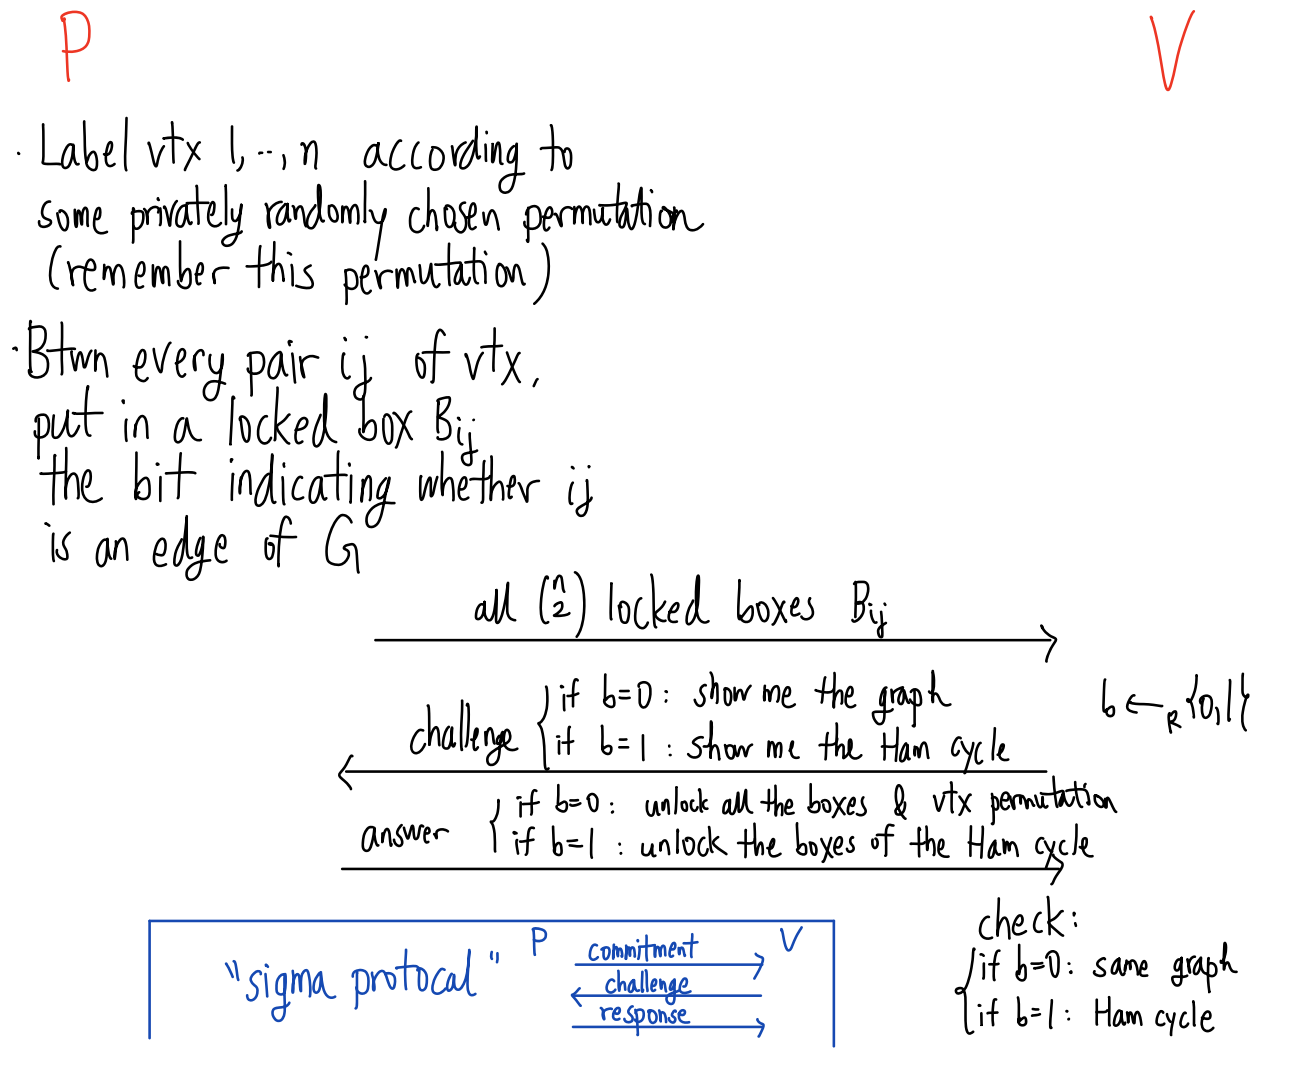 P
V
· Label vtx 1,..,n according to
some privately randomly chosen permutation
(remember this permutation)
· Btwn every pair ij of vtx,
put in a locked box Bij
the bit indicating whether ij
is an edge of G
all (n 2) locked boxes Bij
b ←R {0,1}
challenge { if b=0: show me the graph
if b=1: show me the Ham cycle
answer { if b=0: unlock all the boxes & vtx permutation
if b=1: unlock the boxes of the Ham cycle
check:
{ if b=0: same graph
if b=1: Ham cycle
"sigma protocal"
P
V
commitment
challenge
response